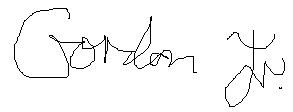 Gordon Jr.